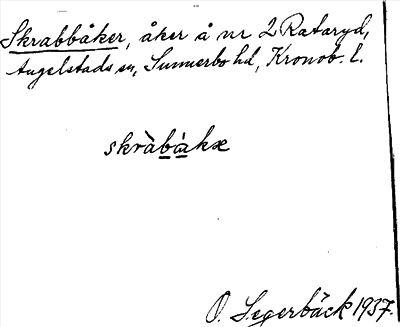 Skrabbåker, åker å nr 2 Rataryd,
Angelstads sn, Sunnerbo hd, Kronob. l.
skràbåkæ
O. Segerbäck 1937.